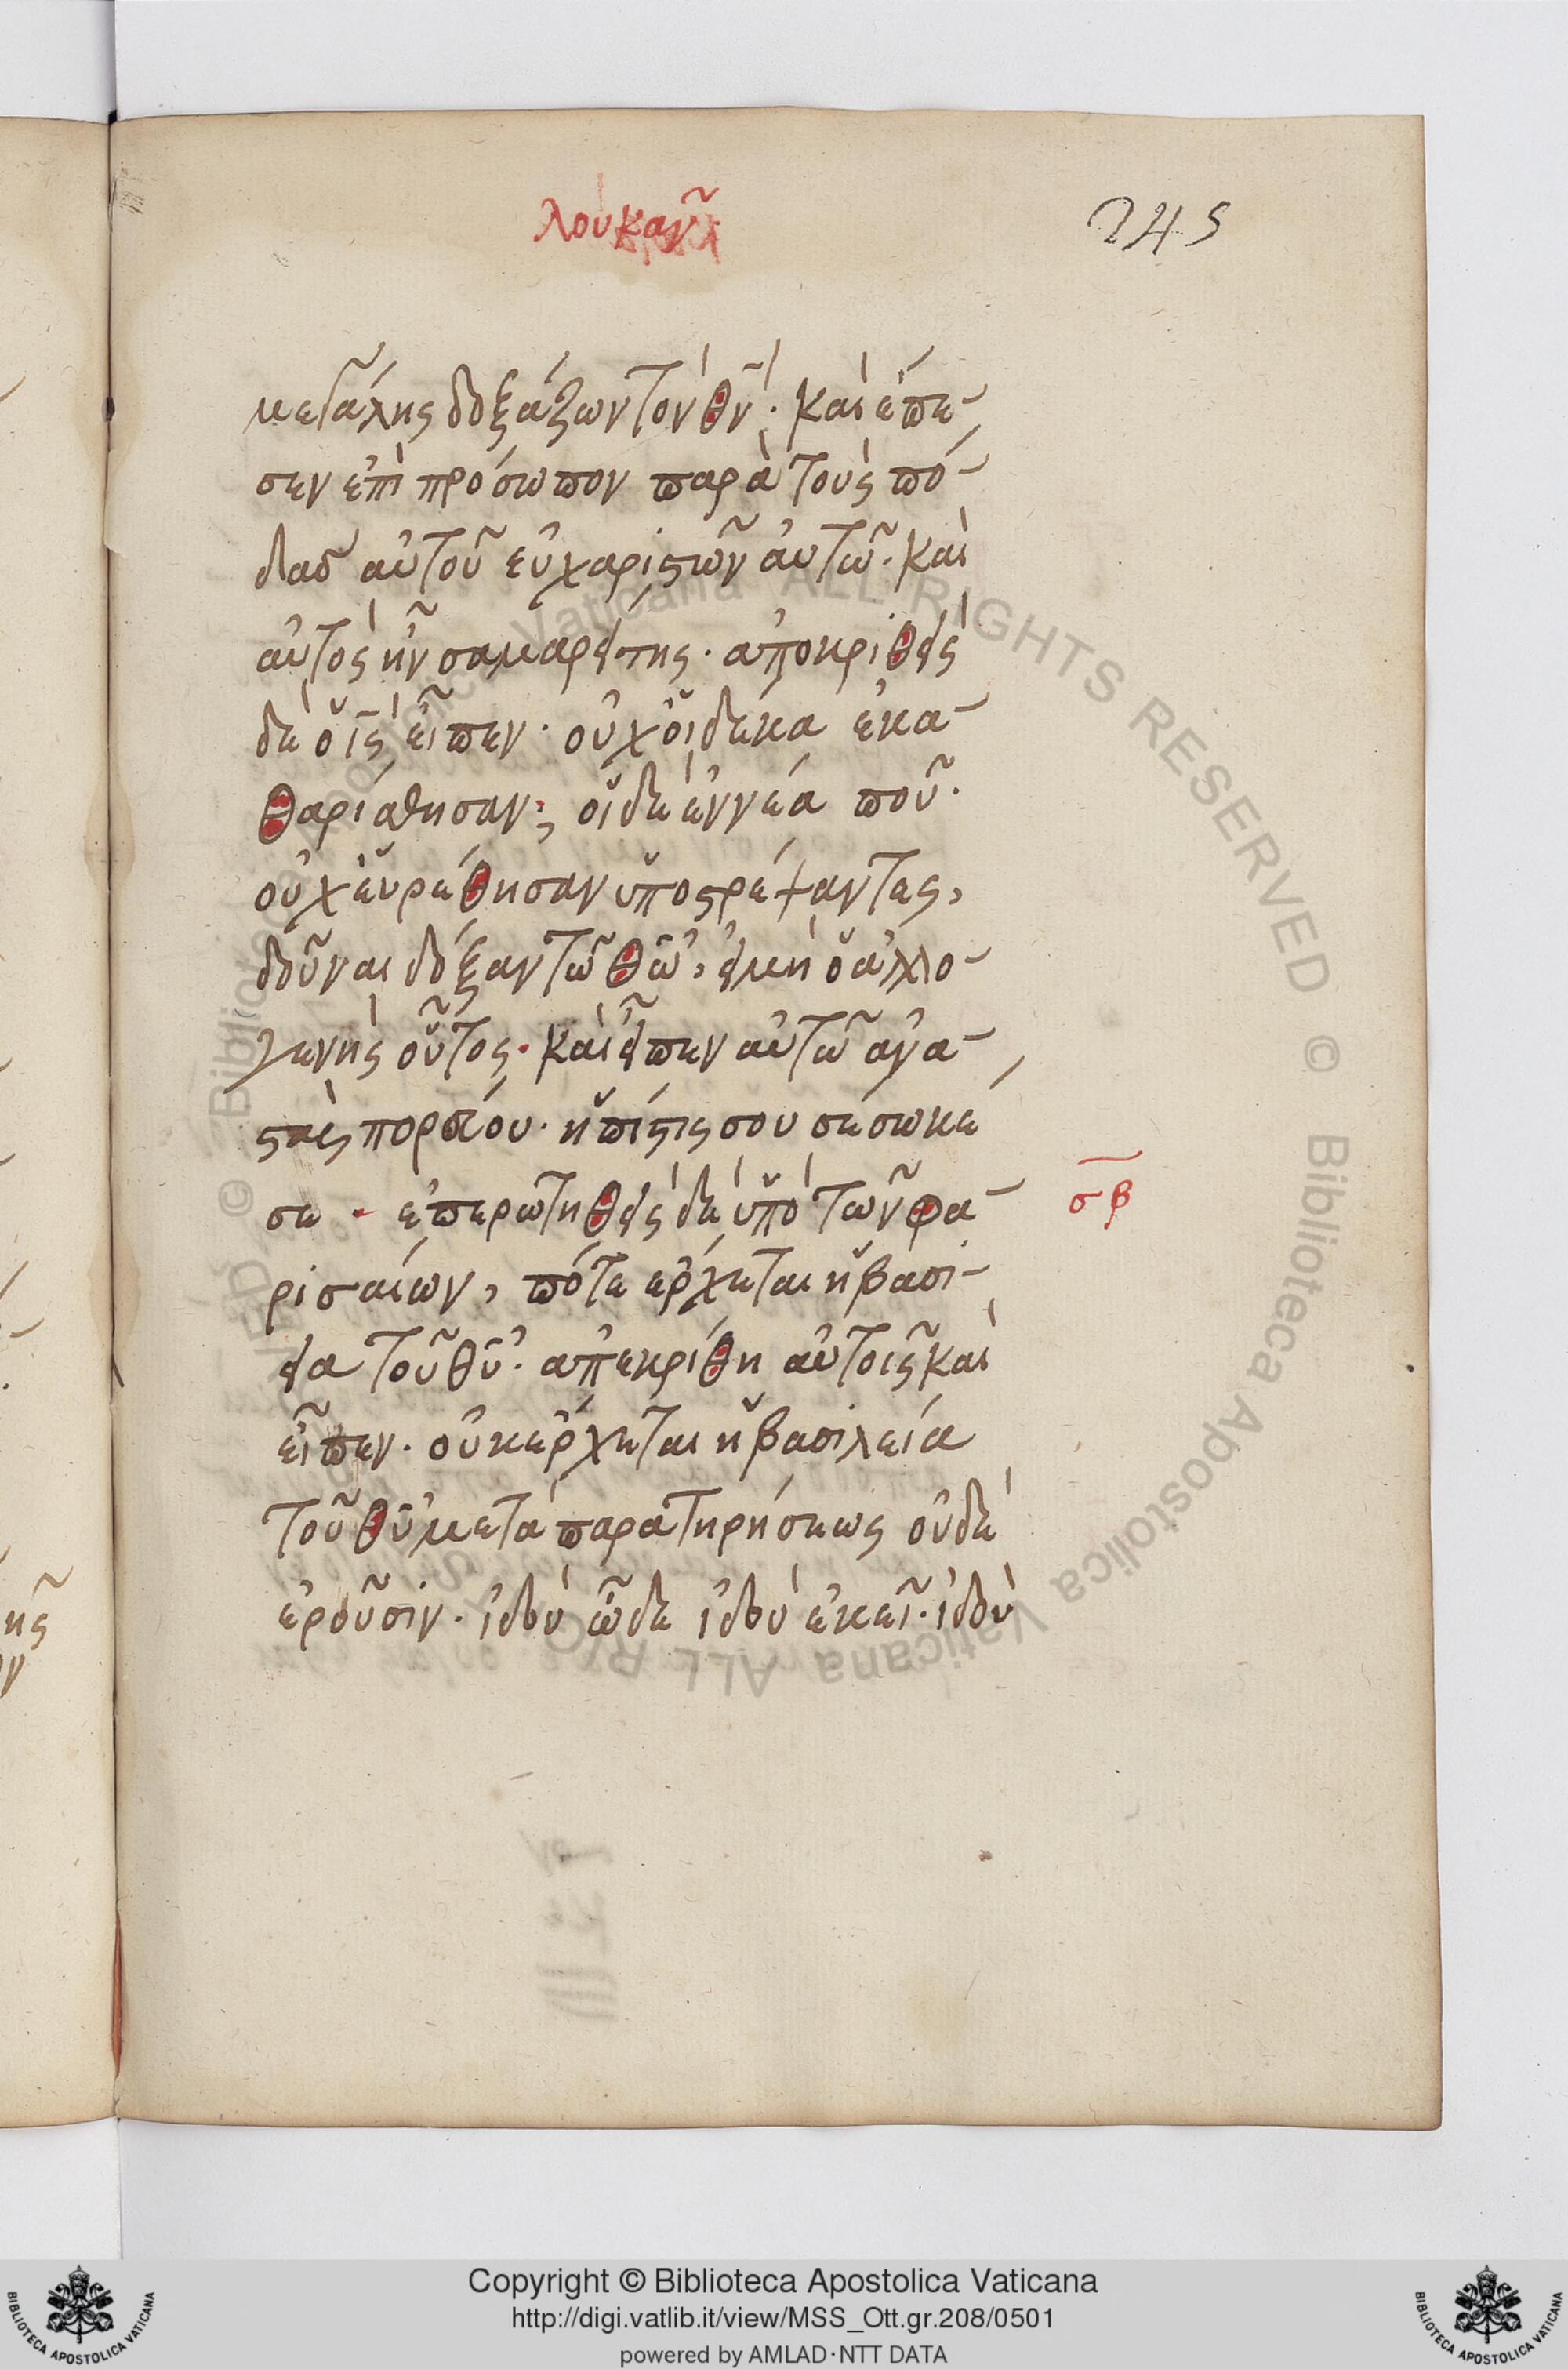 λουκαν
245
μεγάλης δοξάζων τὸν θν̄. καὶ ἔπε-
σεν ἐπὶ πρόσωπον παρὰ τοὺς πό-
δας αὐτοῦ εὐχαριστῶν αὐτῶ. καὶ
αὐτὸς ἦν σαμαρείτης. ἀποκριθεὶς
δὲ ὁ ις̄ εἶπεν. οὐχ οἱ δέκα ἐκα-
θαρίσθησαν; οἱ δὲ ἐννέα ποῦ.
οὐχ εὑρέθησαν ὑποστρέψαντες,
δοῦναι δόξαν τῶ θω̄, εἰ μὴ ὁ ἀλλο-
γενὴς οὗτος. καὶ εἶπεν αὐτῶ ἀνα-
στὰς πορεύου. ἡ πίστις σου σέσωκέ
σε. ἐπερωτηθεὶς δὲ ὑπὸ τῶν φα-
σβ
ρισαίων, πότε ἔρχεται ἡ βασι-
εία τοῦ θῡ. ἀπεκρίθη αὐτοῖς καὶ
εἶπεν. οὐκ ἔρχεται ἡ βασιλεία
τοῦ θῡ μετὰ παρατηρήσεως οὐδὲ
ἐροῦσιν. ἰδοὺ ὧδε ἰδοὺ ἐκεῖ. ἰδοὺ
© Biblioteca Apostolica Vaticana ALL RIGHTS RESERVED © Biblioteca Apostolica Vaticana ALL RIG
Copyright © Biblioteca Apostolica Vaticana
http://digi.vatlib.it/view/MSS_Ott.gr.208/0501
powered by AMLAD·NTT DATA
BIBLIOTECA APOSTOLICA VATICANA
BIBLIOTECA APOSTOLICA VATICANA